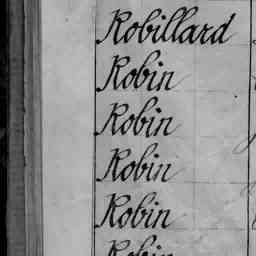 Robillard
Robin
Robin
Robin
Robin
Robin